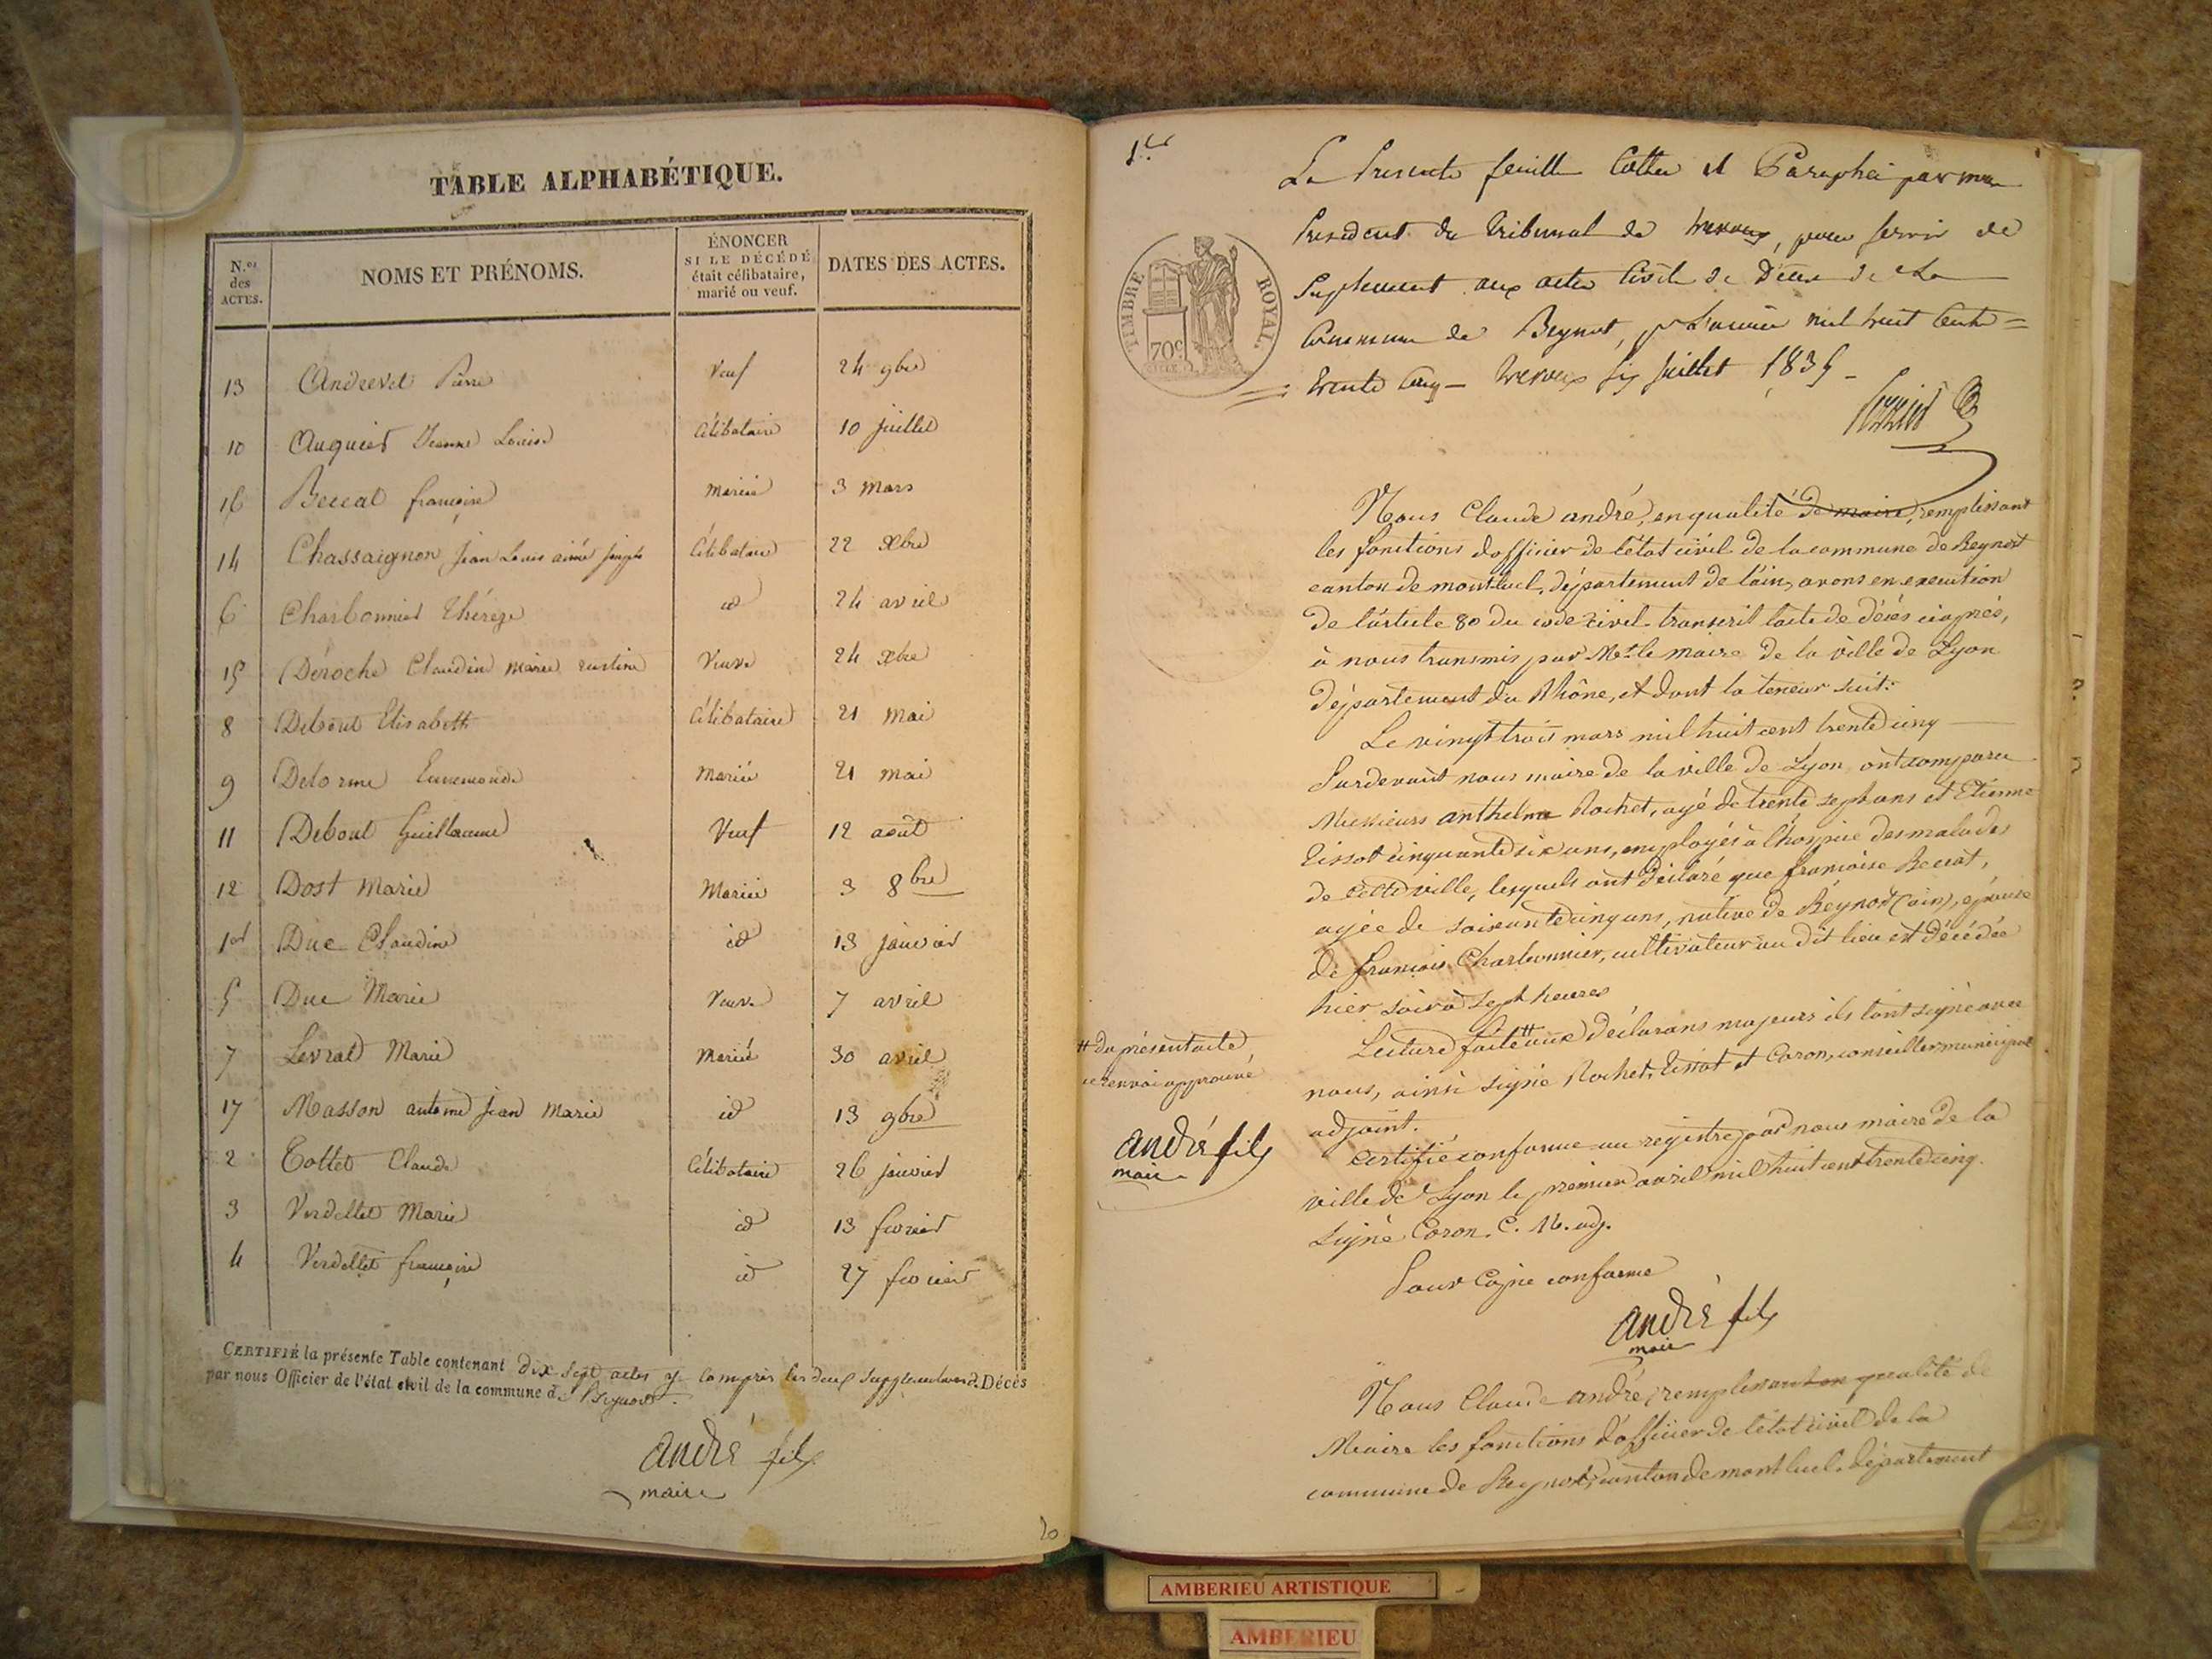 TABLE ALPHABÉTIQUE.
N.os des ACTES. NOMS ET PRÉNOMS. ÉNONCER SI LE DÉCÉDÉ était célibataire, marié ou veuf. DATES DES ACTES.
13 Andrevet Pierre Veuf 24 9bre
10 Auquier Jeanne Louise Célibataire 10 juillet
16 Beccat françoise mariée 3 mars
14 Chassaignon Jean Louis aimé joseph Célibataire 22 Xbre
6 Charbonnier Thérèze id 24 avril
15 Déroche Claudine marie Veuve 24 Xbre
8 Debout Elisabeth Célibataire 21 mai
9 Delorme Ennemonde Mariée 21 mai
11 Debout Guillaume Veuf 12 août
12 Dost Marie Mariée 3 8bre
1er Duc Claudine id 13 janvier
5 Duc Marie Veuve 7 avril
7 Levrat Marie Mariée 30 avril
17 Masson antoine jean marie id 13 9bre
2 Tottet Claude Célibataire 26 janvier
3 Verdellet Marie id 13 fevrier
4 Verdellet françoise id 27 fevrier
CERTIFIÉ la présente Table contenant dix sept actes y compris les deux supplémentaires d. Décès
par nous Officier de l'état civil de la commune de Beynost.
André fils
maire
20
1er
La Presente feuille Cottée et Paraphée par nous
President du Tribunal de trevoux, pour servir de
Suplement aux actes Civils de Décès de La
Commune de Beynost, pr L'année mil huit Cent
trente Cinq - trevoux six juillet 1835 -
TIMBRE ROYAL.
70c
Nous Claude andré, en qualité de maire, remplissant
les fonctions d'officier de l'état civil de la commune de Beynost
canton de montluel, département de l'ain, avons en execution
de l'article 80 du code civil transcrit l'acte de décès ciaprès,
à nous transmis par Mr le maire de la ville de Lyon
département du Rhône, et dont la teneur suit:
Le vingt trois mars mil huit cent trente cinq
Pardevant nous maire de la ville de Lyon ont comparu
Messieurs anthelme Rochet, agé de trente sept ans et Etienne
Tissot cinquante six ans, employés à l'hospice des malades
de cette ville, lesquels ont déclaré que françoise Beccat,
agée de soixante cinq ans, native de Beynost (ain), épouse
de françois Charbonnier, cultivateur au dit lieu est décédée
hier soir à sept heures
Lecture faite # aux déclarans majeurs ils l'ont signé avec
nous, ainsi signé Rochet, Tissot et Coron, conseiller municipal
adjoint.
# du présent acte
ce renvoi approuvé
André fils
maire
Certifié conforme au registre par nous maire de la
ville de Lyon le premier avril mil huit cent trente cinq.
Signé Coron. C. M. adj.
Pour Copie conforme
André fils
maire
Nous Claude andré, remplissant en qualité de
Maire les fonctions d'officier de l'état civil de la
commune de Beynost, canton de montluel, département
AMBERIEU ARTISTIQUE
AMBERIEU